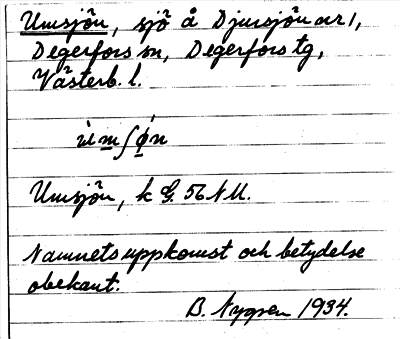 Umsjön, sjö å Djursjön nr 1,
Degerfors sn, Degerfors tg,
Västerb. l.
ùmʃǿn
Umsjön, k G. 56 NU.
Namnets uppkomst och betydelse
obekant.
B. Nygren 1934.